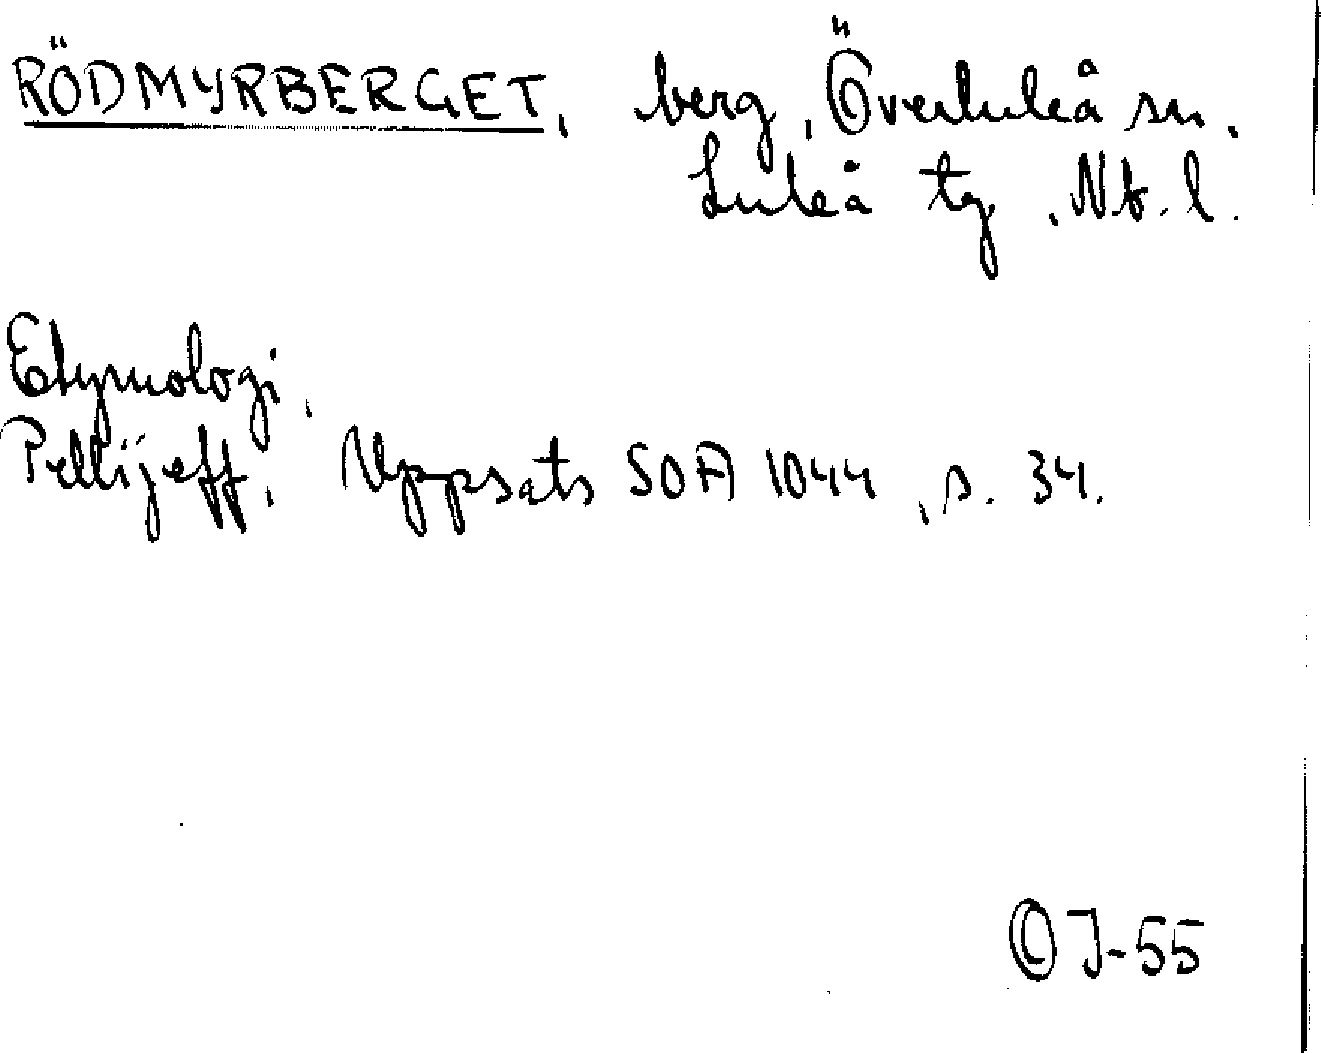 RÖDMYRBERGET, berg, Överluleå sn.
Luleå tg, Nb. l.
Etymologi,
Pellijeff, Uppsats SOA 1044, s. 34.
OJ-55